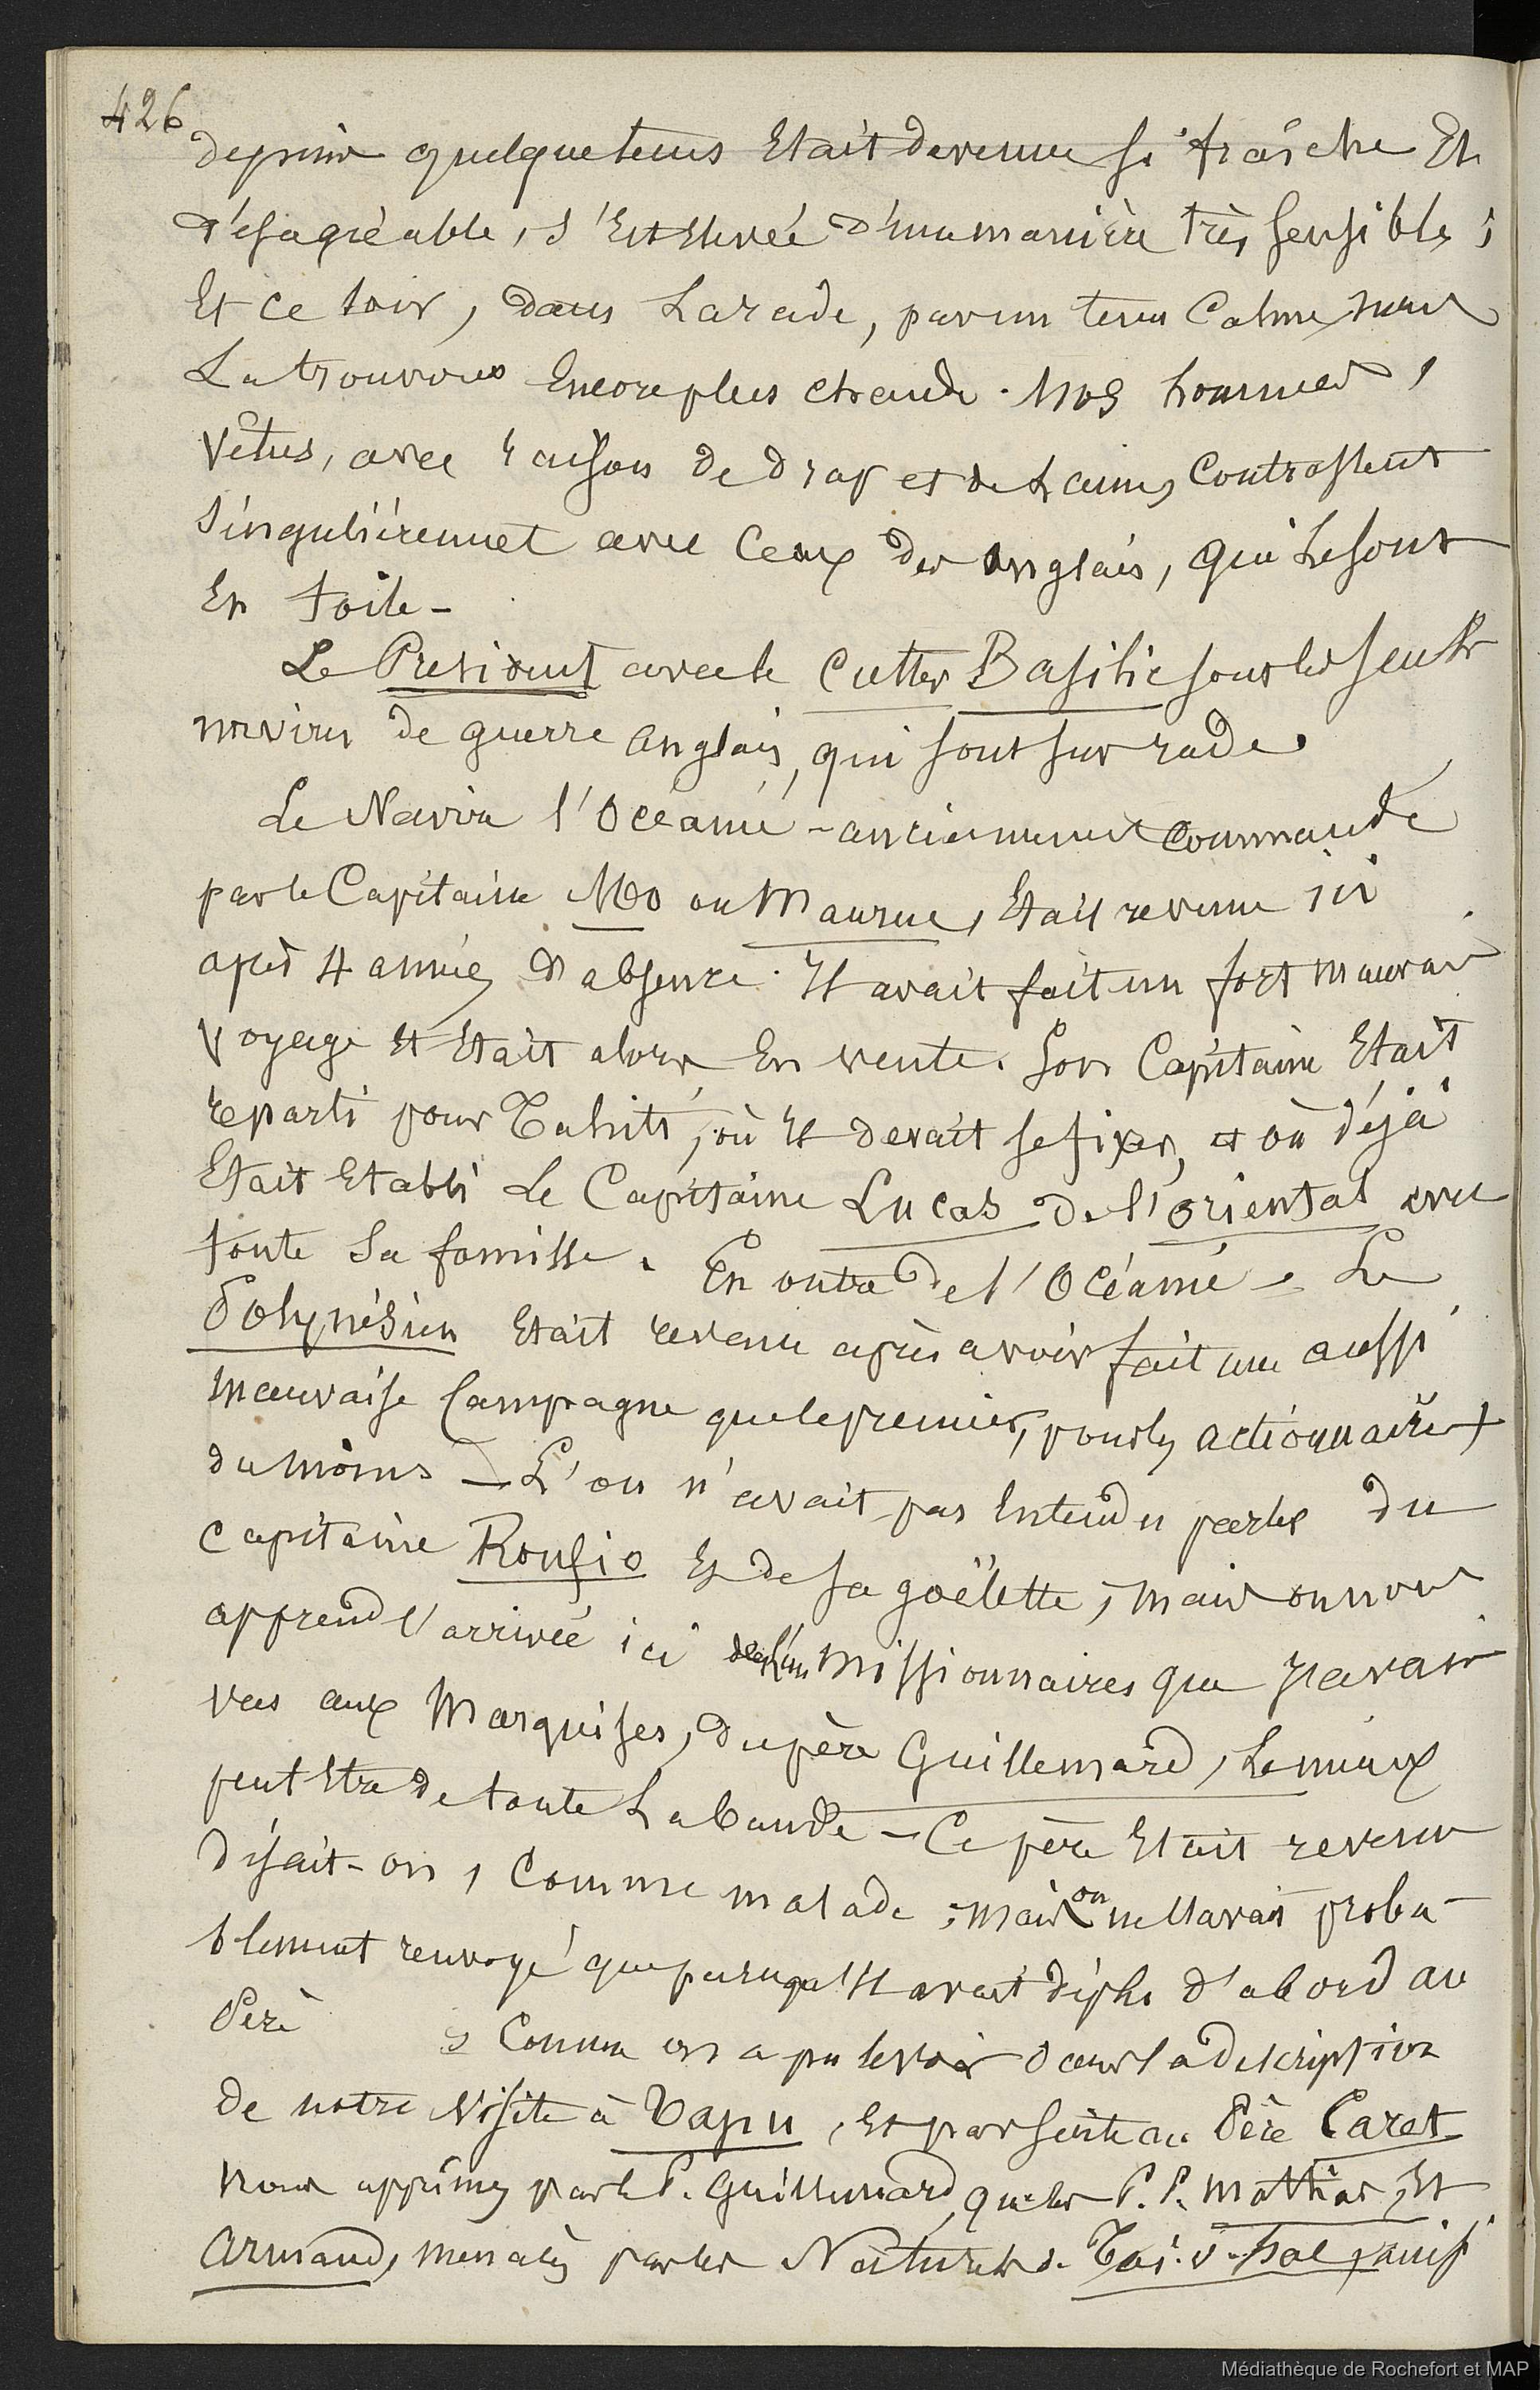 426
depuis quelque tems Etait devenue si fraîche Et
désagréable, s'Est Elevée d'une manière très sensible ;
Et ce soir, dans La rade, par un tems Calme, nous
La trouvons Encore plus chaude. Nos hommes,
Vêtus, avec raison de drap et de Laine, Contrastent
singulièrement avec Ceux des anglais, qui Le sont
En toile -
Le President avec le Cutter Basilic sont les seuls
navires de guerre Anglais, qui sont sur rade.
Le Navire l'Océanie - anciennement Commandé
par le Capitaine Mo ou Maurue, Etait revenu ici
après 4 années d'absence. Il avait fait un fort mauvais
Voyage Et Etait alors En vente. Son Capitaine Etait
reparti pour Tahiti, où Il devait se fixer, et où déjà
Etait Etabli Le Capitaine Lucas de l'oriental avec
toute Sa famille. En outre de l'Océanie - Le
Polynésien Etait revenu après avoir fait une aussi
mauvaise Campagne que le premier, pour les actionnaires
du moins - L'on n'avait pas Entendu parler du
Capitaine Roufio Et de sa goëlette, mais on nous
apprend l'arrivée ici missionnaires que j'avais
vus aux Marquises, du père Guillemard, Le mieux
peut Etre de toute La bande - Ce père Etait revenu
disait-on, Comme malade ; mais on ne l'avait proba-
blement renvoyé que parcequ'Il avait déplu d'abord au
Père , Comme on a pu le voir dans la description
de notre Visite à Vapu, Et par suite au Père Caret
Nous apprîmes par le P. Guillemard, que les P.P. Mathias Et
Armand, menacés par les Naturels de Tai-o-hae, puis
Médiathèque de Rochefort et MAP